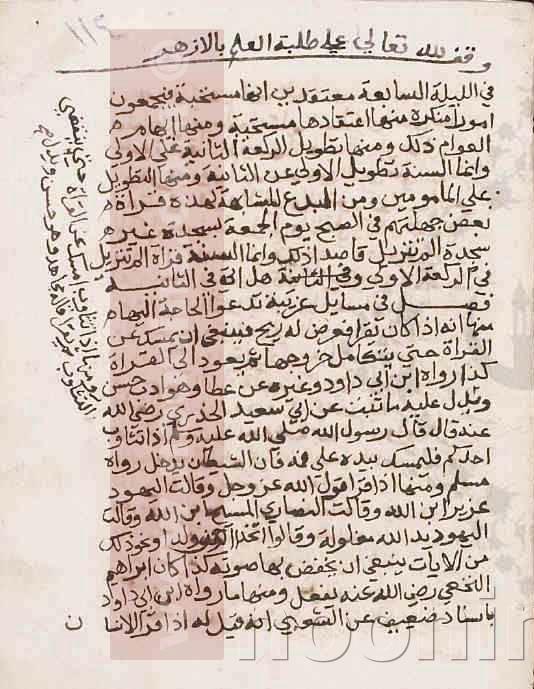 ١١٤
وقف لله تعالى على طلبة العلم بالازهر
في الليلة السابعة معتقدين انها مستحبة فيجمعون
امورا منكرة منها اعتقادها مستحبة ومنها ايهام
العوام ذلك ومنها تطويل الركعة الثانية على الاولى
وانما السنة تطويل الاولى عن الثانية ومنها التطويل
على المامومين ومن البدع المشابهة لهذه قراة
بعض جهلتهم في الصبح يوم الجمعة بسجدة غير
سجدة الم تنزيل قاصدا ذلك وانما السنة قراة الم تنزيل
في الركعة الاولى وفي الثانية هل اتى في الثانية
فصل في مسايل غريبة تدعوا الحاجة اليها
منها انه اذا كان يقرا فعرض له ريح فينبغي ان يمسك عن
القراة حتى يتكامل خروجها ثم يعود الى القراة
كذا رواه ابن ابي داود وغيره عن عطا وهو ادب حسن
ويدل عليه ما ثبت عن ابي سعيد الخدري رضي الله
عنه قال قال رسول الله صلى الله عليه وسلم اذا تثاوب
احدكم فليمسك بيده على فمه فان الشيطان يدخل رواه
مسلم ومنها اذا قرا قول الله عز وجل وقالت اليهود
عزير ابن الله وقالت النصارى المسيح ابن الله وقالت
اليهود يد الله مغلولة وقالوا اتخذ الرحمن ولدا ونحو ذلك
من الايات ينبغي ان يخفض بها صوته كذا كان ابراهيم
النخعي رضي الله عنه يفعل ومنها ما رواه ابن ابي داود
باسناد ضعيف عن الشعبي انه قيل له اذا قرا الانسا
ن
ومنها اذا تثاوب امسك عن القراة حتى ينقضي
التثاوب ثم يقرا قاله مجاهد وهو حسن ويدل
noorlib